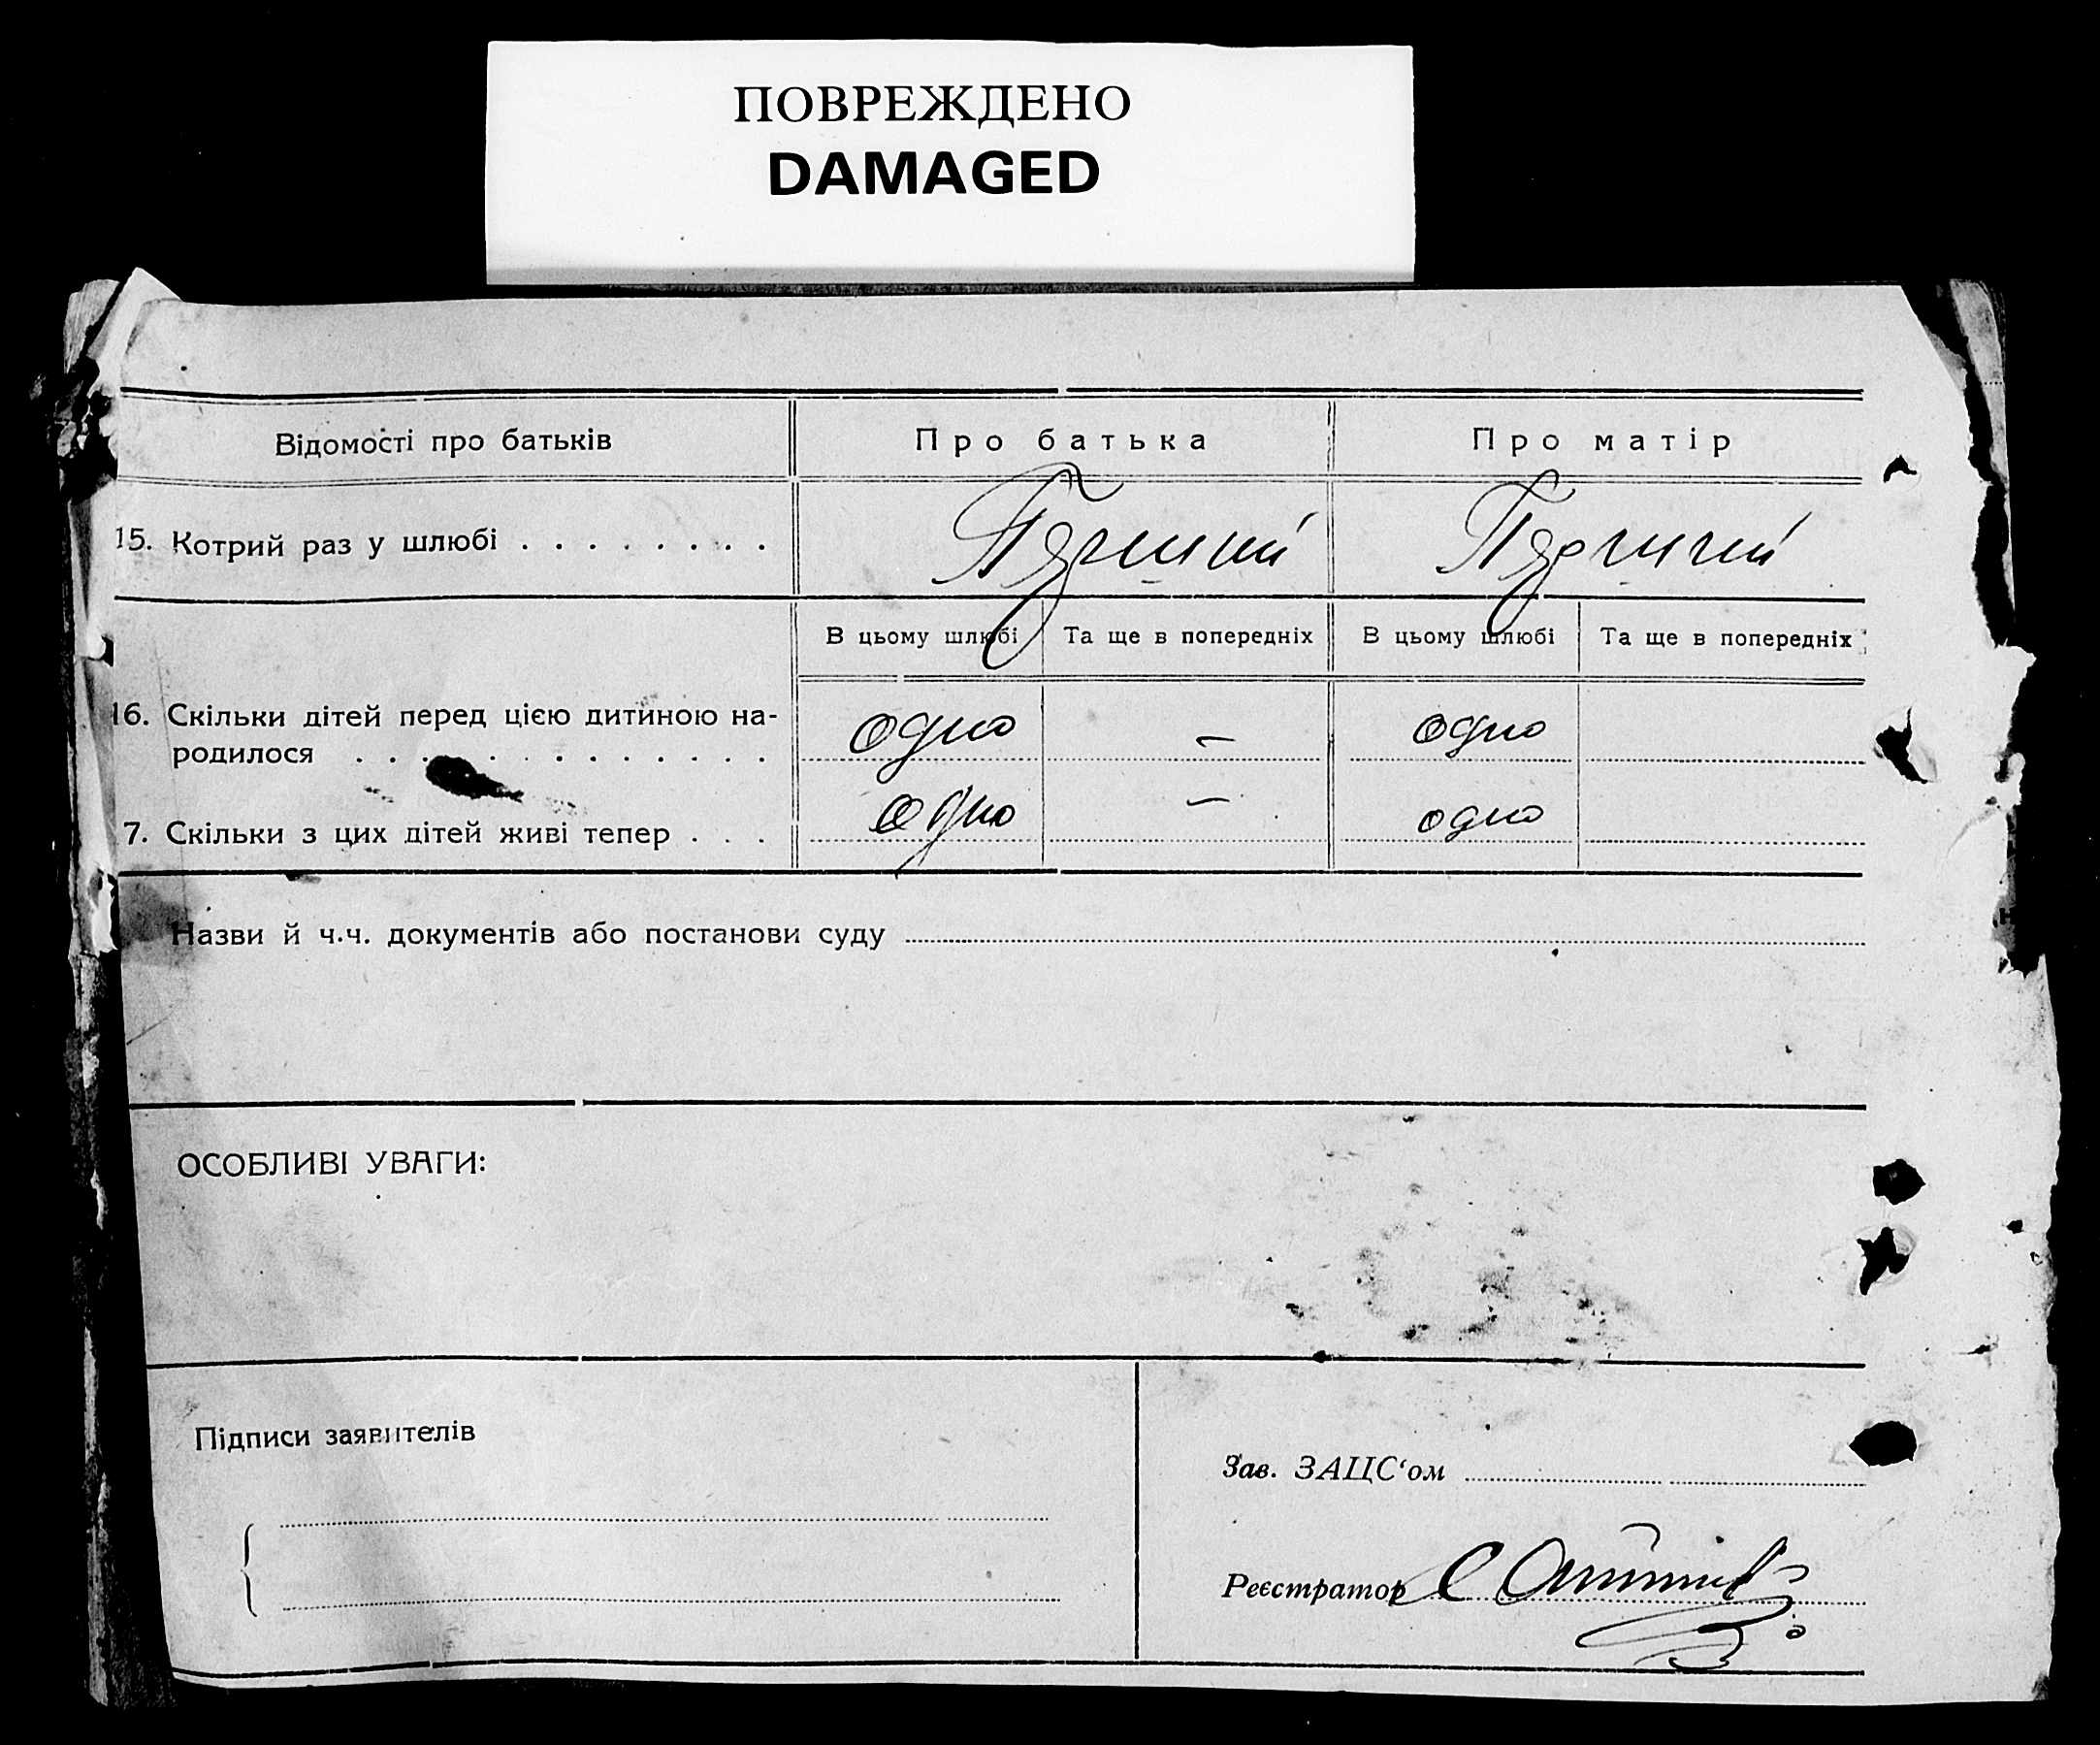 ПОВРЕЖДЕНО
DAMAGED
Відомості про батьків
Про батька
Про матір
15. Котрий раз у шлюбі . . . . . . . .
Перший
Перший
В цьому шлюбі
Та ще в попередніх
В цьому шлюбі
Та ще в попередніх
16. Скільки дітей перед цією дитиною на-
родилося . . . . . . . . . . . . .
одно
—
одно
7. Скільки з цих дітей живі тепер . . .
одно
—
одно
Назви й ч.ч. документів або постанови суду
ОСОБЛИВІ УВАГИ:
Підписи заявителів
Зав. ЗАЦС‘ом
Реєстратор